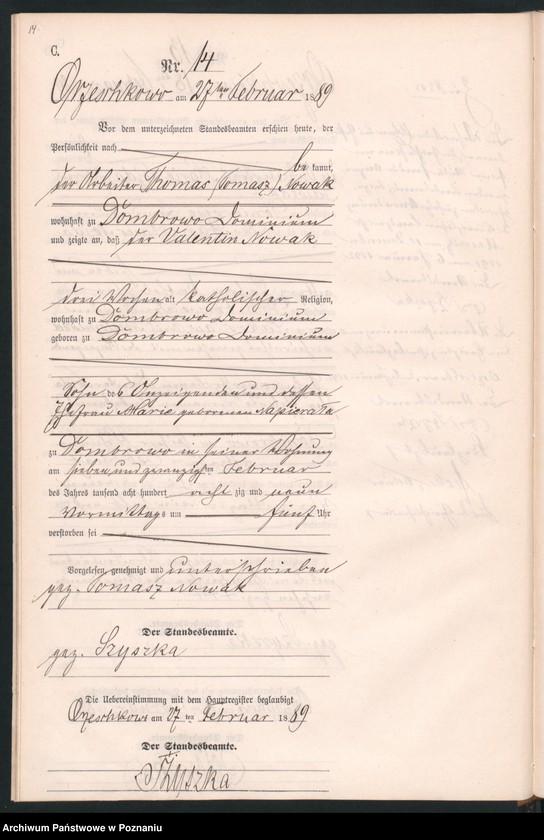 14
C.
Nr. 14
Orzeschkowo am 27ten Februar 1889
Vor dem unterzeichneten Standesbeamten erschien heute, der
Persönlichkeit nach
bekannt,
der Arbeiter Thomas (Tomasz) Nowak
wohnhaft zu Dombrowo Dominium
und zeigte an, daß der Valentin Nowak
drei Wochen alt katholischer Religion,
wohnhaft zu Dombrowo Dominium
geboren zu Dombrowo Dominium
Sohn des Anzeigenden und dessen
Ehefrau Marie geborenen Napierala
zu Dombrowo in seiner Wohnung
am sieben und zwanzigsten Februar
des Jahres tausend acht hundert achtzig und neun
Vormittags um fünf Uhr
verstorben sei
Vorgelesen, genehmigt und unterschrieben
gez. Tomasz Nowak
Der Standesbeamte.
gez. Szyszka
Die Uebereinstimmung mit dem Hauptregister beglaubigt
Orzeschkowo am 27ten Februar 1889
Der Standesbeamte.
Szyszka
Archiwum Państwowe w Poznaniu